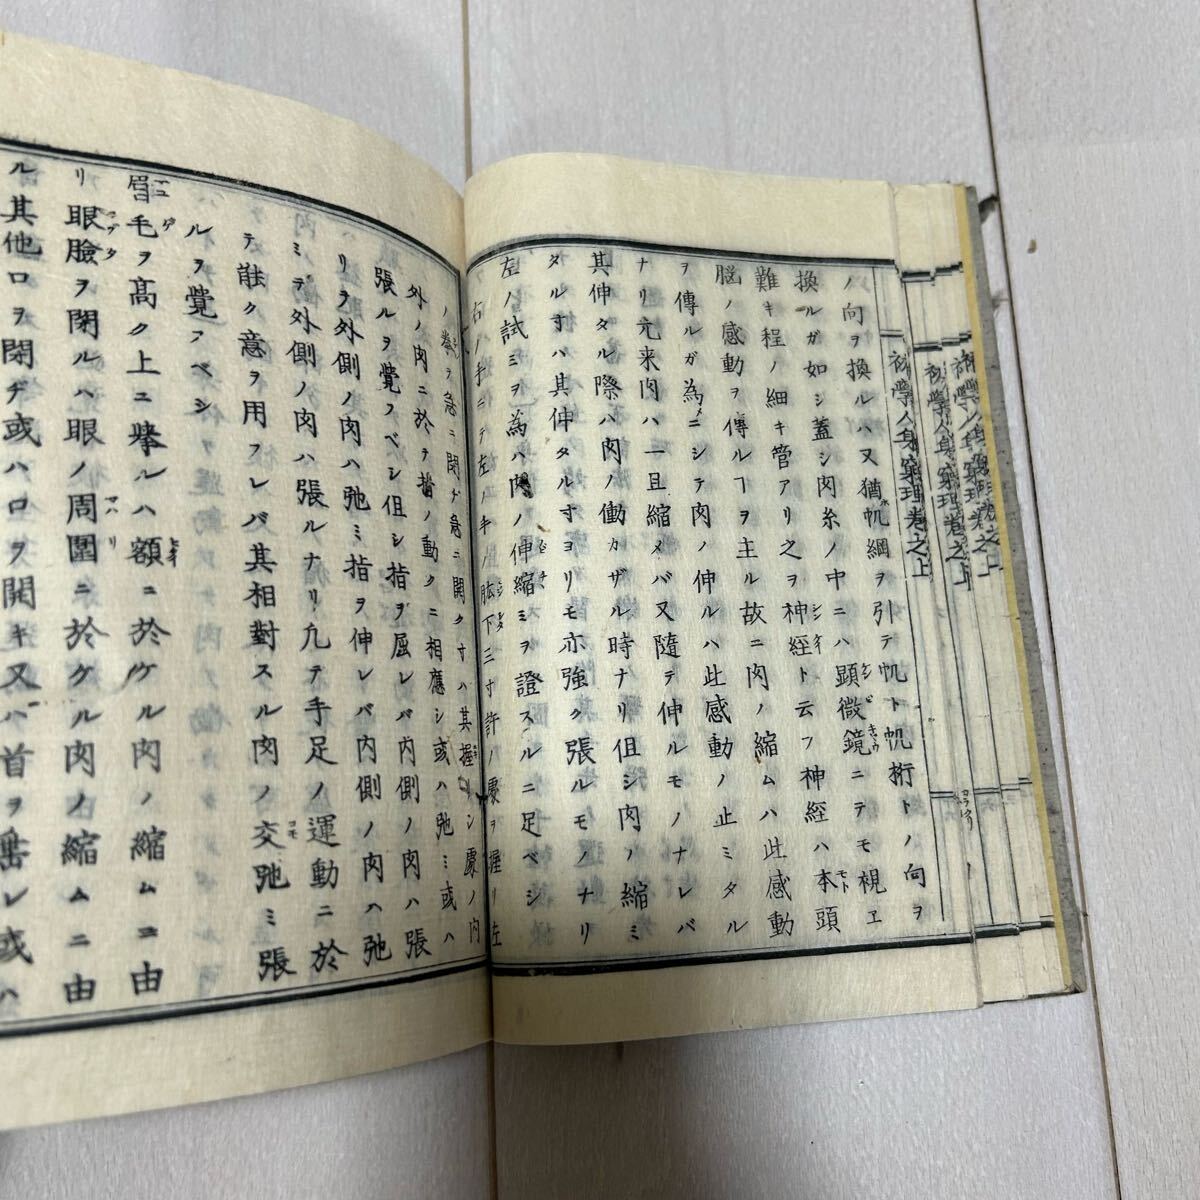 ノ向ヲ換ルハ又猶帆綱ヲ引テ帆ト帆桁トノ向ヲ
換ルガ如シ蓋シ肉糸ノ中ニハ顕微鏡ニテモ視エ
難キ程ノ細キ管アリ之ヲ神経ト云フ神経ハ本頭
脳ノ感動ヲ傳ルヿヲ主ル故ニ肉ノ縮ムハ此感動
ヲ傳ルガ為メニシテ肉ノ伸ルハ此感動ノ止ミタル
ナリ元来肉ハ一旦縮メバ又隨テ伸ルモノナレバ
其伸タル際ハ肉ノ働カザル時ナリ但シ肉ノ縮ミ
タル寸ハ其伸タル寸ヨリモ亦強ク張ルモノナリ
左ノ試ミヲ為ハ肉ノ伸縮ミヲ證スルニ足ベシ
右ノ手ニテ左ノ手ノ肱下三寸許ノ處ヲ握リ左
ノ拳ヲ急ニ閉ヂ急ニ開ク寸ハ其握リシ處ノ内
外ノ肉ニ於テ指ノ動クニ相應シ或ハ弛ミ或ハ
張ルヲ覺フベシ但シ指ヲ屈レバ内側ノ肉ハ張
リテ外側ノ肉ハ弛ミ指ヲ伸レバ内側ノ肉ハ弛
ミテ外側ノ肉ハ張ルナリ凡テ手足ノ運動ニ於
テ能ク意ヲ用フレバ其相對スル肉ノ交弛ミ張
ルヲ覺フベシ
眉毛ヲ高ク上ニ拳ルハ額ニ於ケル肉ノ縮ムニ由
リ眼臉ヲ閉ルハ眼ノ周圍ニ於ケル肉ノ縮ムニ由
ル其他口ヲ閉ヂ或ハ口ヲ開キ又ハ首ヲ垂レ或ハ
初學人身窮理巻之上
初學人身窮理巻之上
初學人身窮理巻之上